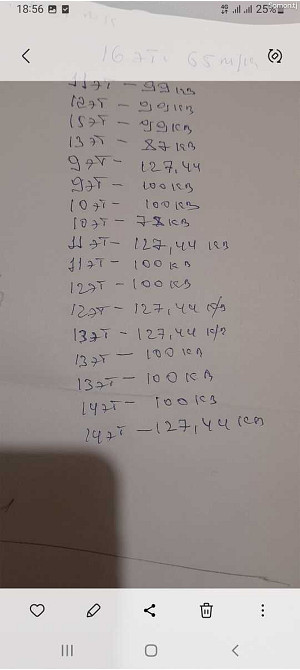 18:56
4G
25%
somon.tj
16 эт - 65 м/кв
11эт - 99кв
12эт - 99кв
15эт - 99кв
13эт - 87кв
9эт - 127,44
9эт - 100кв
10эт - 100кв
10эт - 78кв
11эт - 127,44 кв
11эт - 100кв
12эт - 100кв
12эт - 127,44 к/в
13эт - 127,44 к/в
13эт - 100 кв
13эт - 100кв
14эт - 100кв
14эт - 127,44 кв